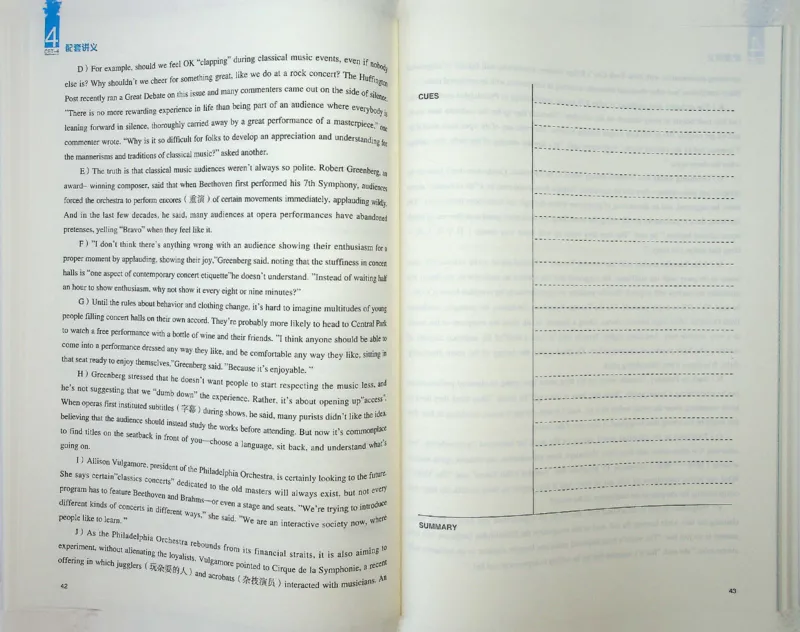 4
CET-4
配套讲义
D) For example, should we feel OK "clapping" during classical music events, even if nobody
else is? Why shouldn't we cheer for something great, like we do at a rock concert? The Huffington
Post recently ran a Great Debate on this issue and many commenters came out on the side of silence.
"There is no more rewarding experience in life than being part of an audience where everybody is
leaning forward in silence, thoroughly carried away by a great performance of a masterpiece," one
commenter wrote. "Why is it so difficult for folks to develop an appreciation and understanding for
the mannerisms and traditions of classical music?" asked another.
E) The truth is that classical music audiences weren't always so polite. Robert Greenberg, an
award- winning composer, said that when Beethoven first performed his 7th Symphony, audiences
forced the orchestra to perform encores (重演) of certain movements immediately, applauding wildly.
And in the last few decades, he said, many audiences at opera performances have abandoned
pretenses, yelling "Bravo" when they feel like it.
F) "I don't think there's anything wrong with an audience showing their enthusiasm for a
proper moment by applauding, showing their joy,"Greenberg said, noting that the stuffiness in concert
halls is "one aspect of contemporary concert etiquette"he doesn't understand. "Instead of waiting half
an hour to show enthusiasm, why not show it every eight or nine minutes?"
G) Until the rules about behavior and clothing change, it's hard to imagine multitudes of young
people filling concert halls on their own accord. They're probably more likely to head to Central Park
to watch a free performance with a bottle of wine and their friends. "I think anyone should be able to
come into a performance dressed any way they like, and be comfortable any way they like, sitting in
that seat ready to enjoy themselves,"Greenberg said. "Because it's enjoyable. "
H) Greenberg stressed that he doesn't want people to start respecting the music less, and
he's not suggesting that we "dumb down" the experience. Rather, it's about opening up"access".
When operas first instituted subtitles (字幕) during shows, he said, many purists didn't like the idea,
believing that the audience should instead study the works before attending. But now it's commonplace
to find titles on the seatback in front of you—choose a language, sit back, and understand what's
going on.
I) Allison Vulgamore, president of the Philadelphia Orchestra, is certainly looking to the future.
She says certain"classics concerts" dedicated to the old masters will always exist, but not every
program has to feature Beethoven and Brahms—or even a stage and seats. "We're trying to introduce
different kinds of concerts in different ways," she said. "We are an interactive society now, where
people like to learn. "
J) As the Philadelphia Orchestra rebounds from its financial straits, it is also aiming to
experiment, without alienating the loyalists. Vulgamore pointed to Cirque de la Symphonie, a recent
offering in which jugglers (玩杂耍的人) and acrobats (杂技演员) interacted with musicians. An
42
CUES
SUMMARY
43